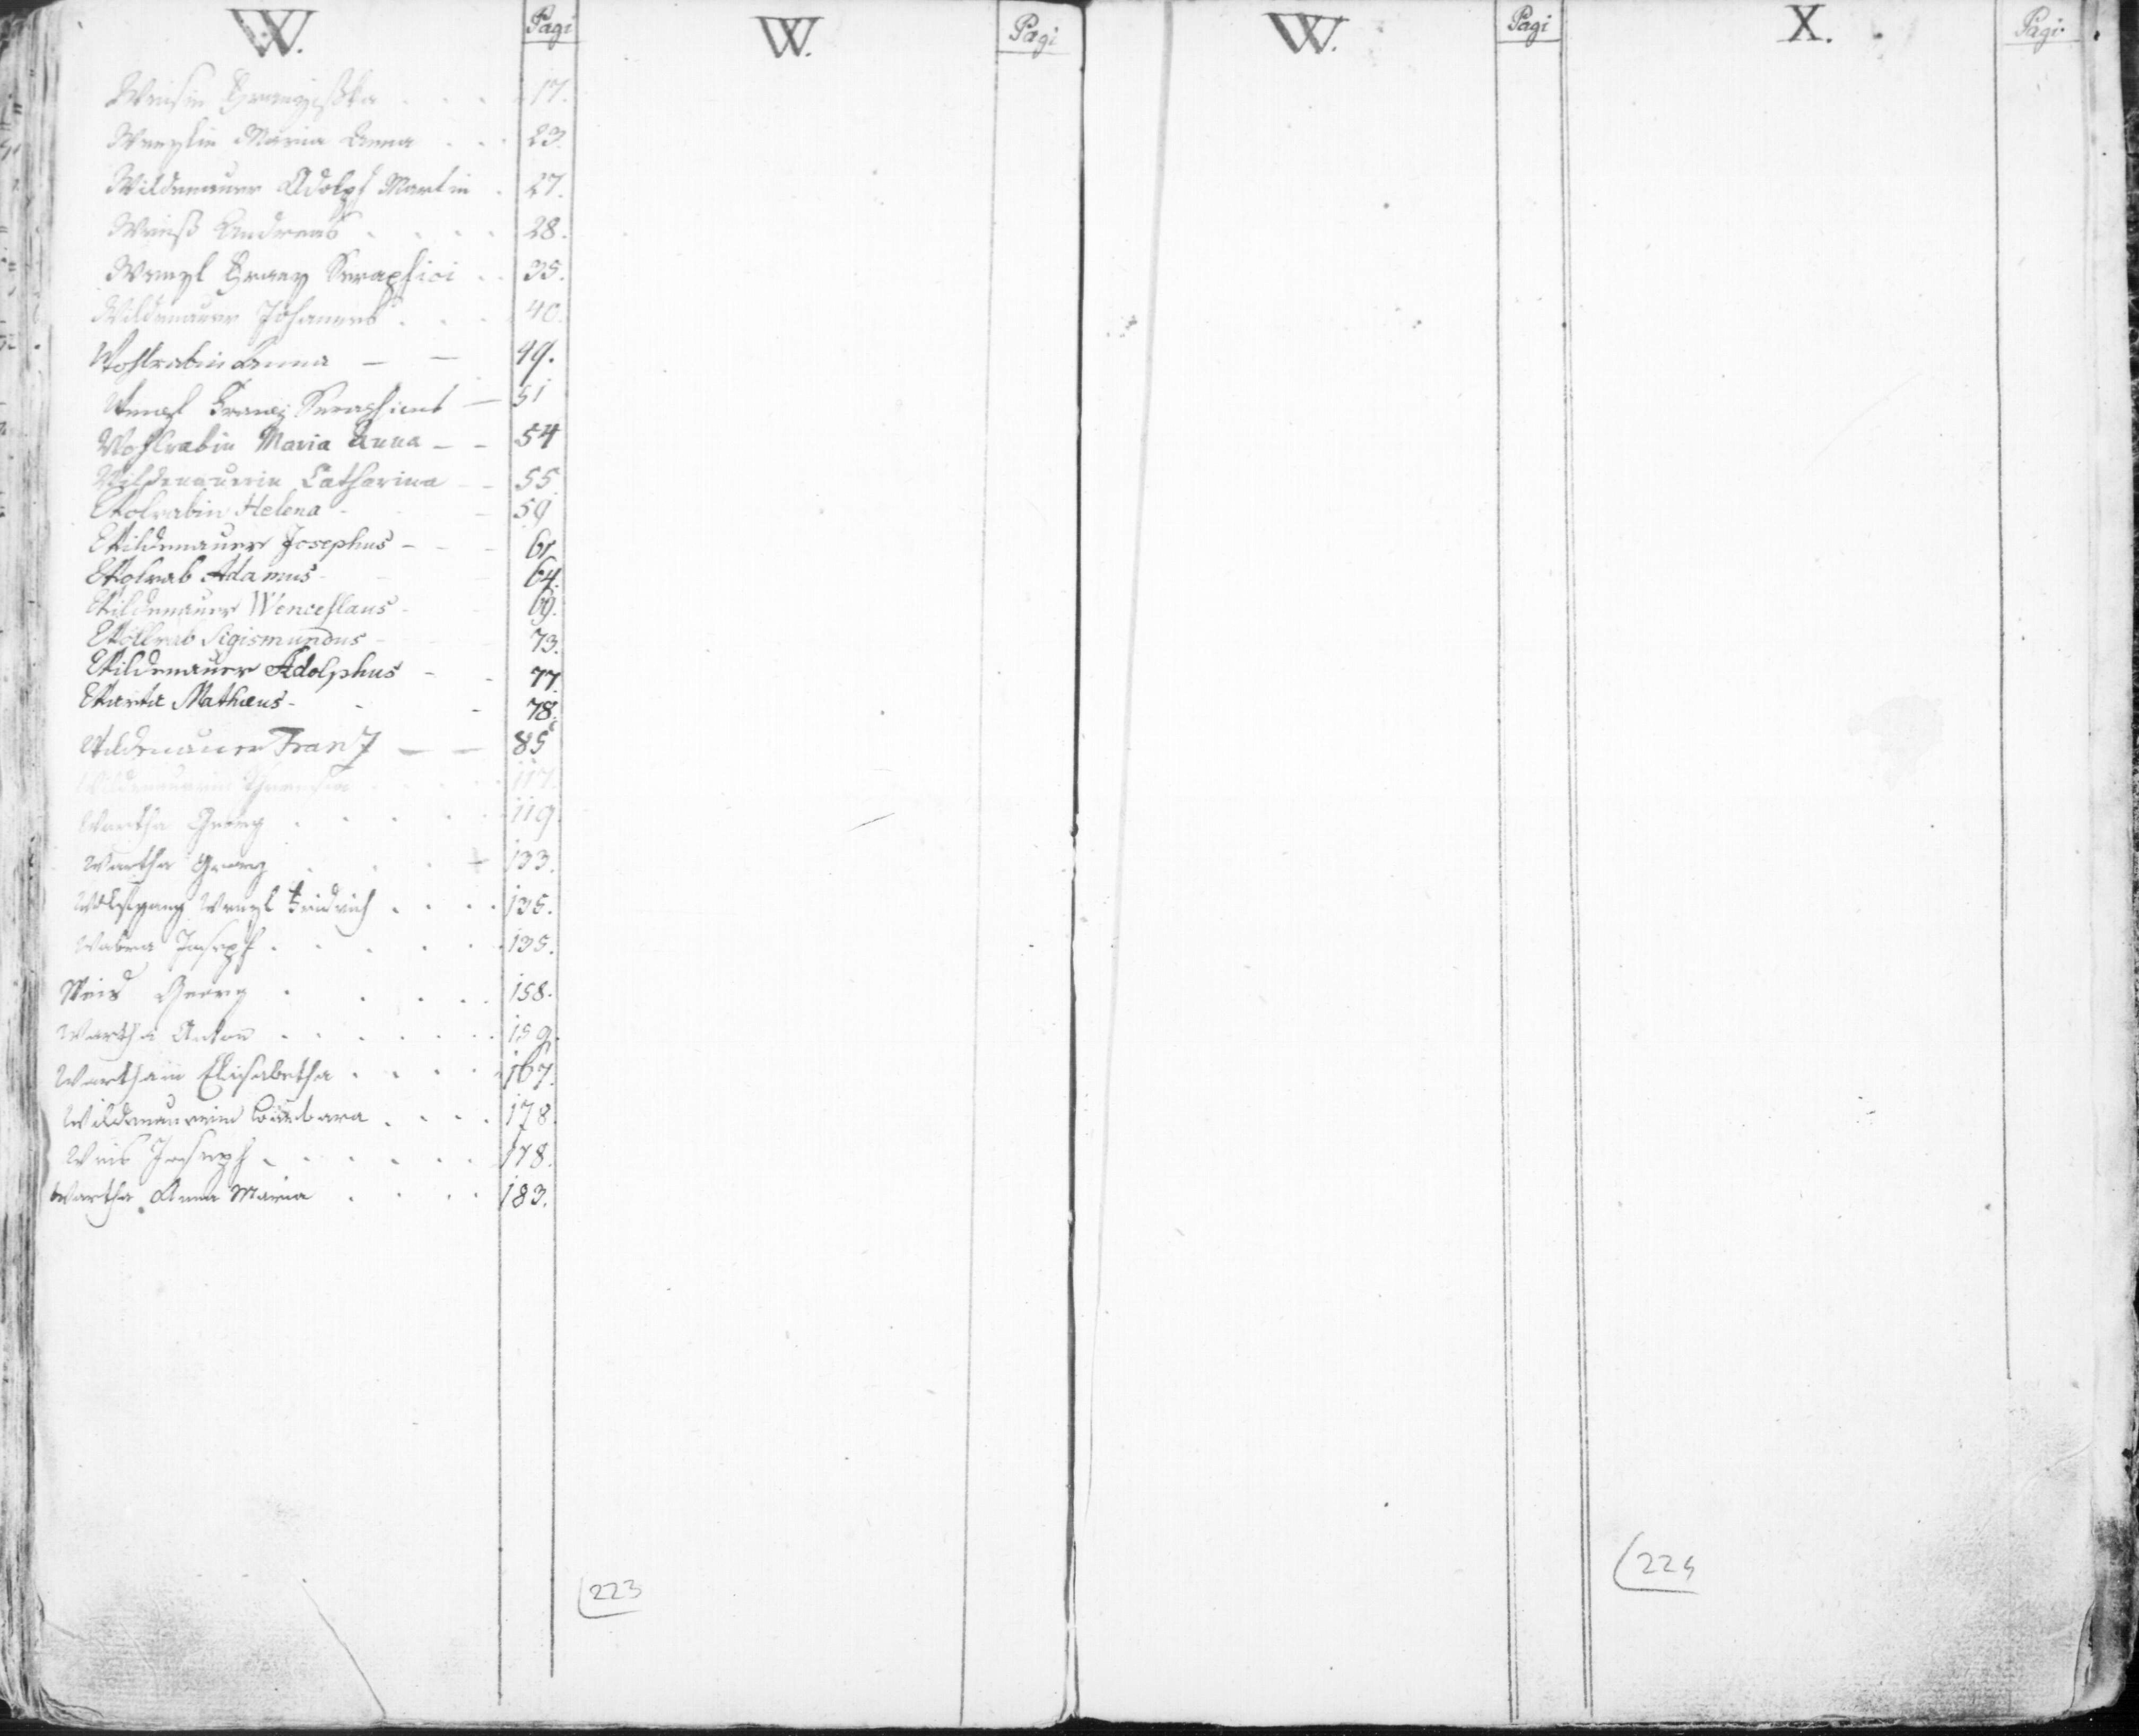 W. Pagi
Weisin Franzißka . . . 17.
Wenzlin Maria Anna . . . 23.
Wildenauer Adolph Martin . 27.
Weiß Andreas . . . . 28.
Wenzl Franz Seraphici . . 35.
Wildenauer Johannes . . . 40.
Wohlrabin Anna — — 49.
Wenzl Franz Seraphicus — 51
Wohlrabin Maria Anna — — 54
Wildenauerin Catharina — — 55
Wolrabin Helena - - 59
Wildenauer Josephus - - - 61.
Wolrab Adamus - - - 64.
Wildenauer Wenceslaus - - 69.
Wollrab Sigismundus - - 73.
Wildenauer Adolphus - - 77.
Warta Mathæus - - - 78.
Wildenauer Franz — — 85
Wildenauerin . . . . 117.
Wartha Georg . . . . . 119
Wartha Georg . . . + 133.
Wolfgang Wenzl Fridrich . . . . 135.
Wabra Joseph . . . . . . 135.
Weis Georg . . . . . 158.
Wartha Anton . . . . . . 159.
Warthain Elisabetha . . . . 167.
Wildenauerin Barbara . . . . 178.
Weis Joseph . . . . . . 178.
Wartha Anna Maria . . . . 183.
W. Pagi
223
W. Pagi
X. Pagi.
224